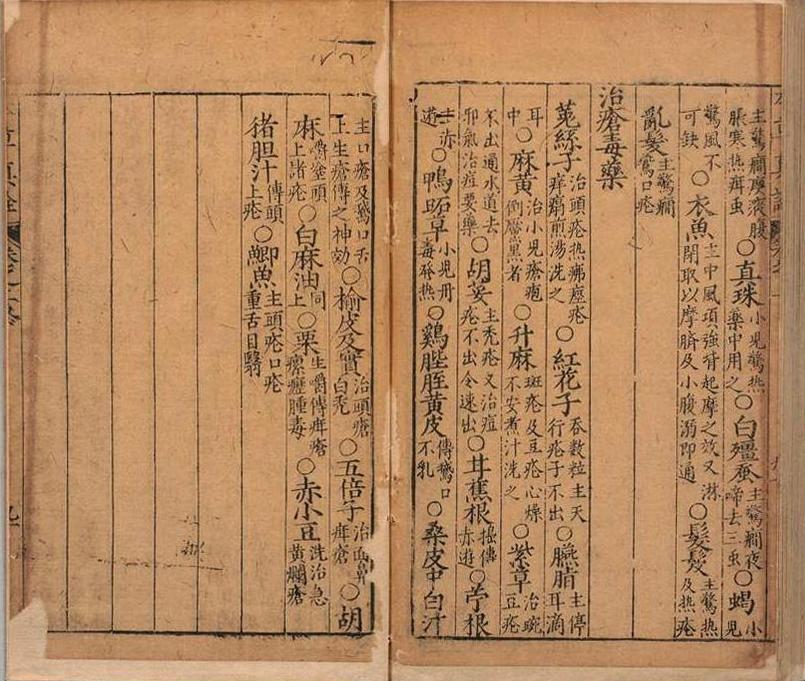 主驚癎痰腹脹寒熱痺虫○真珠小兒驚热藥中用之○白殭蚕主驚癎夜啼去三虫○蝎小兒
驚風不可缺○衣魚主中風項強背起摩之效又淋閉取以摩臍及小腹溺即通○髮髲主驚热及热疮
亂髮主驚癎驚口疮
治瘡毒藥
菟絲子治頭疮热疮痒煎湯洗之○紅花子吞數粒主天行疮子不出○臙脂主停耳滴
耳中○麻黄治小兒瘡疱倒黶黑者○升麻斑疮及豆疮心燥不安煮汁洗之○紫草治豌豆疮
不出通水道去邪氣治痘要藥○胡荽主禿疮又治痘疮不出令速出○甘蕉根搗傅赤遊○苧根
主赤遊○鴨跖草小兒丹毒發热○鷄膍胵黄皮傅驚口不乳○桑皮中白汁
主口瘡及驚口舌上生瘡傅之神効○榆皮及實治頭瘡白禿○五倍子治鼻疳瘡○胡
麻嚼塗頭上諸疮○白麻油同上○栗生嚼傅疳瘡瘰癧腫毒○赤小豆洗治急黄爛瘡
猪胆汁傅頭上疮○鯽魚主頭疮口疮重舌目翳